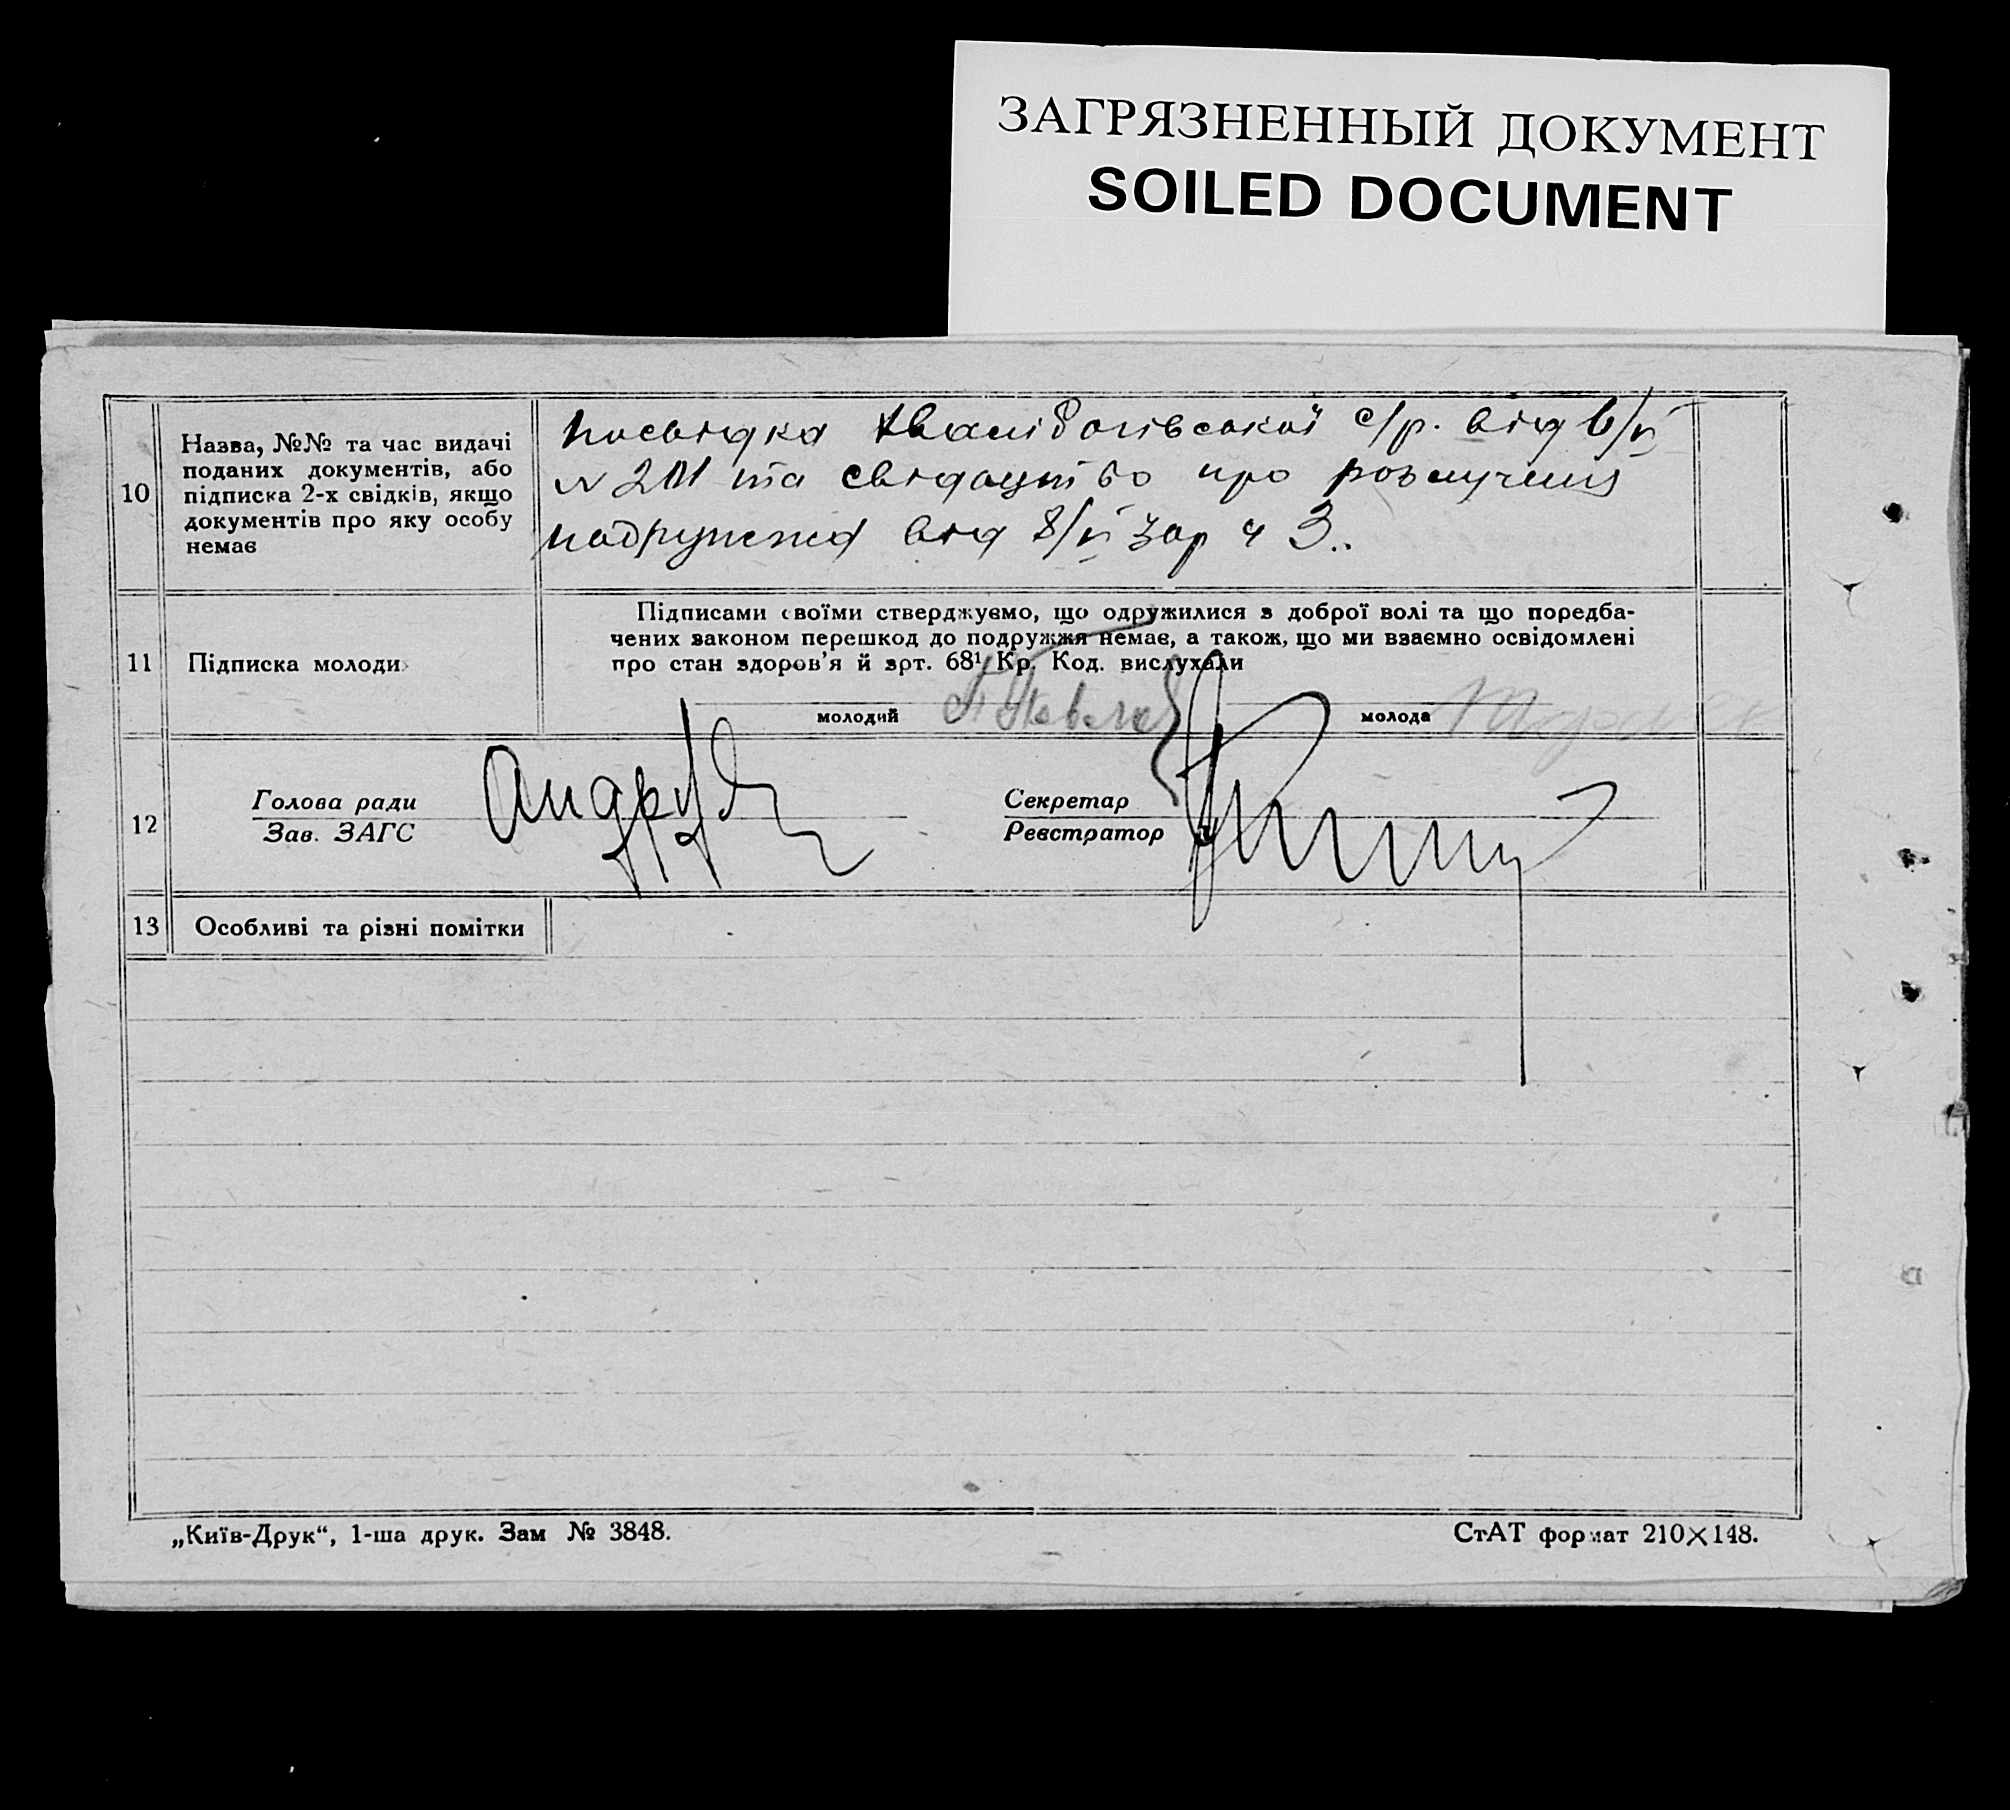 ЗАГРЯЗНЕННЫЙ ДОКУМЕНТ
SOILED DOCUMENT
10
Назва, №№ та час видачі
поданих документів, або
підписка 2-х свідків, якщо
документів про яку особу
немає
посвідка с/р. від 6/VI
N 201 та свідоцтво про розлучення
подружжя від 8/VI зар ч 3..
11
Підписка молоди
Підписами своїми стверджуємо, що одружилися з доброї волі та що поредба-
чених законом перешкод до подружжя немає, а також, що ми взаємно освідомлені
про стан здоров'я й зрт. 68¹ Кр. Код. вислухали
молодий
молода
12
Голова ради
Зав. ЗАГС
Секретар
Реєстратор
13
Особливі та різні помітки
„Київ-Друк“, 1-ша друк. Зам № 3848.
СтАТ формат 210×148.